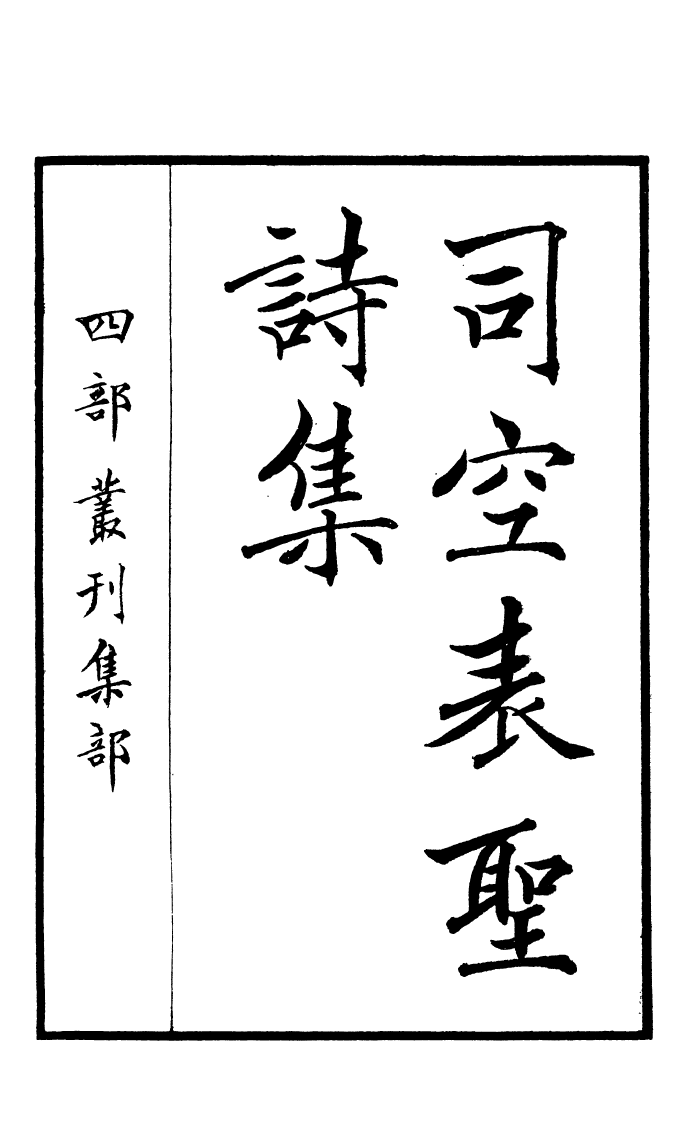 司空表聖
詩集
四部叢刊集部